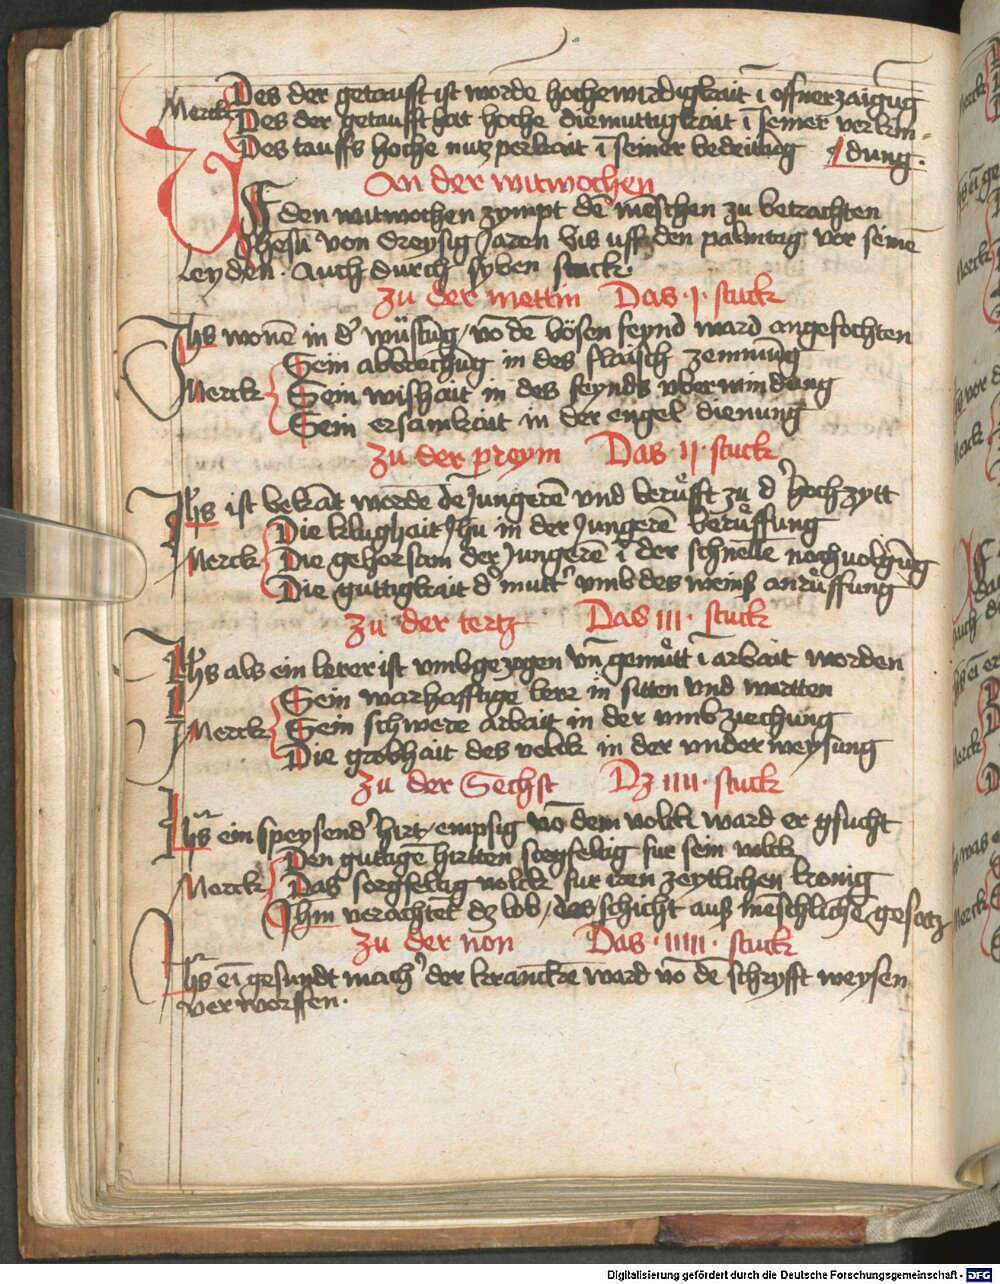 Des der getaufft ist worde hochewirdigkait ī offner zaigūg
Merck Des der getaufft hat hoche diemuttigkait ī seiner verkin-
Des tauffs hoche nutzperkait ī seiner bedeittūg dung.
An der mitwochen
Uff den mitwochen zympt dē mēschen zu betrachten
Jhesū von dreyssig Jaren bis uff den palmtag vor seinē
Leyden. Auch durch syben stuck
Zu der mettin Das .j. stuck
Jhs wonēt in dʾ wüstūg/ vō dē bösen feynd ward angefochten
Sein abbrechūg in des flaisch zemmūg
Merck Sein wishait in des feynds uberwindung
Sein ersamkait in der engel dienung
Zu der preym Das .ij. stuck
Jhs ist bekāt worde dē Jungerē und berüfft zu dʾ hochzytt
Die klughait Jhu in der Jungerē berüffung
Merck Die gehorsam der Jungerē ī der schnelle nochuolgūg
Die guttigkait dʾ muttʾ umb des weins anrüffung
Zu der tertz Das III. stuck
Jhs als ein lerer ist umbgezogen uñ gemütt ī arbait worden
Sein warhafftige lere in sitten und wortten
Merck Sein schwere arbait in der umbziechung
Die grobhait des volck in der underweysung
Zu der Sechst Dz IIII. stuck
Jhs ein speysendʾ hirt/ empsig vō dem volck ward er gsucht
Den guttigē hirtten sorgfeltig fur sein volck
Merck Das sorgfeltig volck fur iren zeytlichen kronig
Jhm verachtet dz lob/ das schicht auß mēschlichē gesatz
Zu der non Das .IIIII. stuck
Jhs eī gesundt machʾ der kranckē ward vō dē schryfft weysen
verworffen.
Digitalisierung gefördert durch die Deutsche Forschungsgemeinschaft - DFG